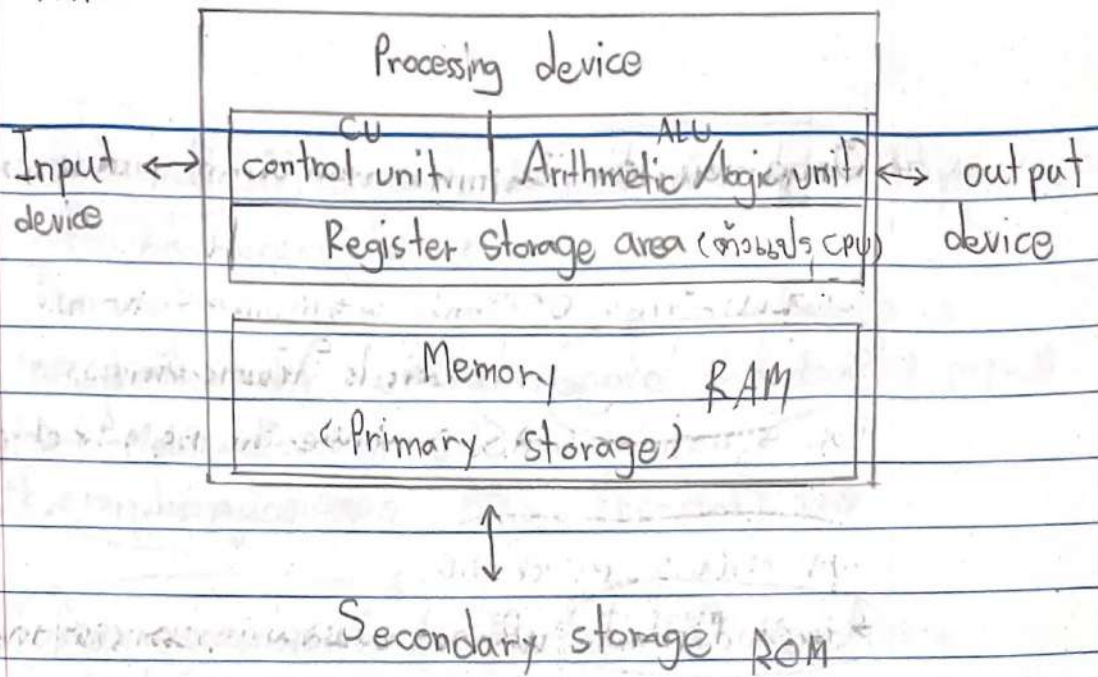 Processing device
CU ALU
Input ↔ control unit Arithmetic/logic unit ↔ output
device Register Storage area (ตัวแปร CPU) device
Memory RAM
(Primary storage)
Secondary storage ROM